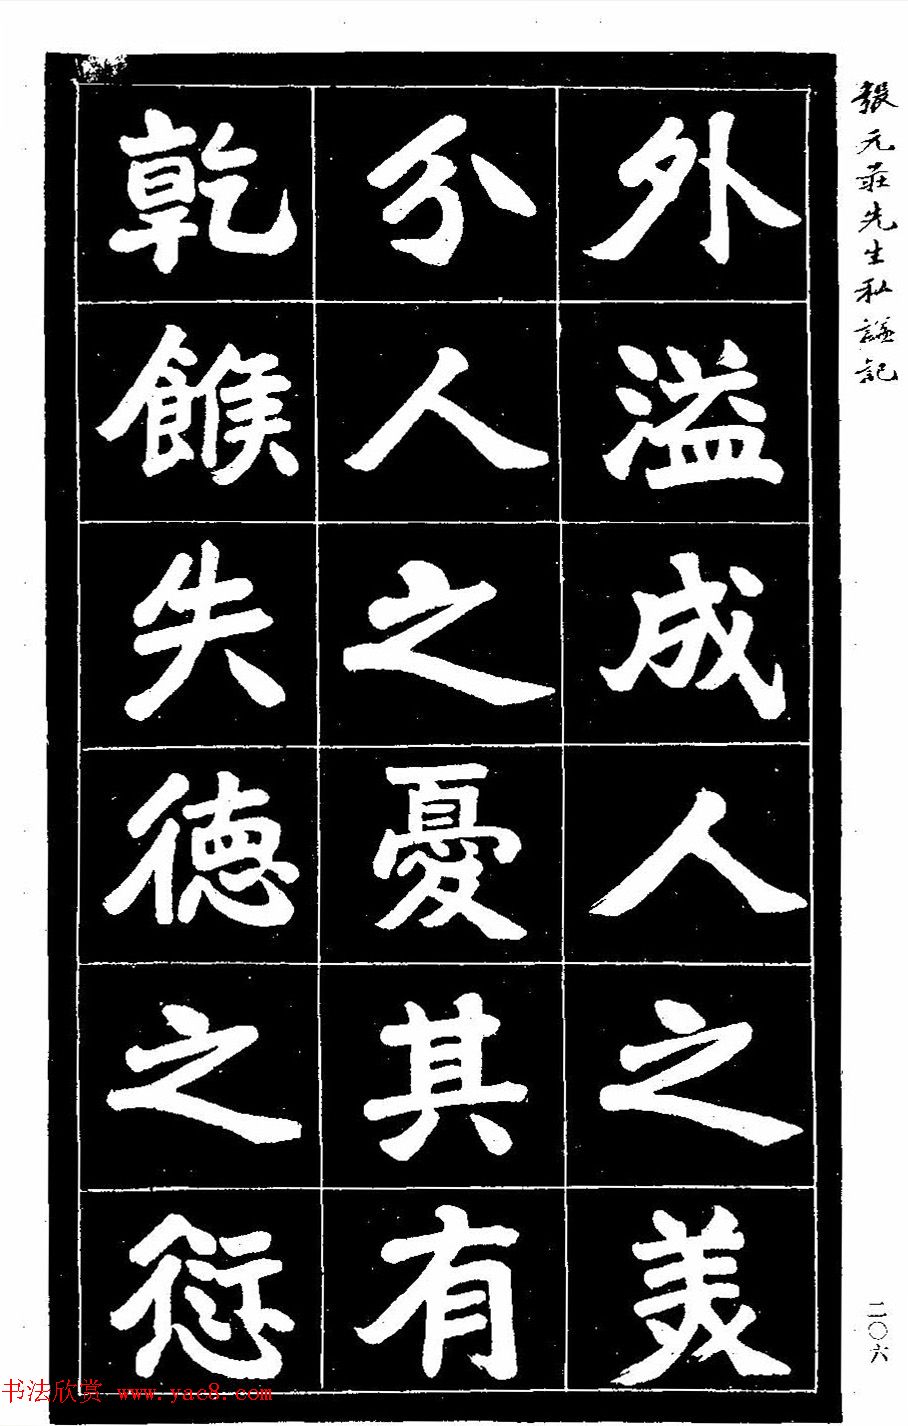 張元莊先生私諡記
外溢成人之美
分人之憂其有
乾餱失德之愆
二〇六
书法欣赏 www.yac8.com